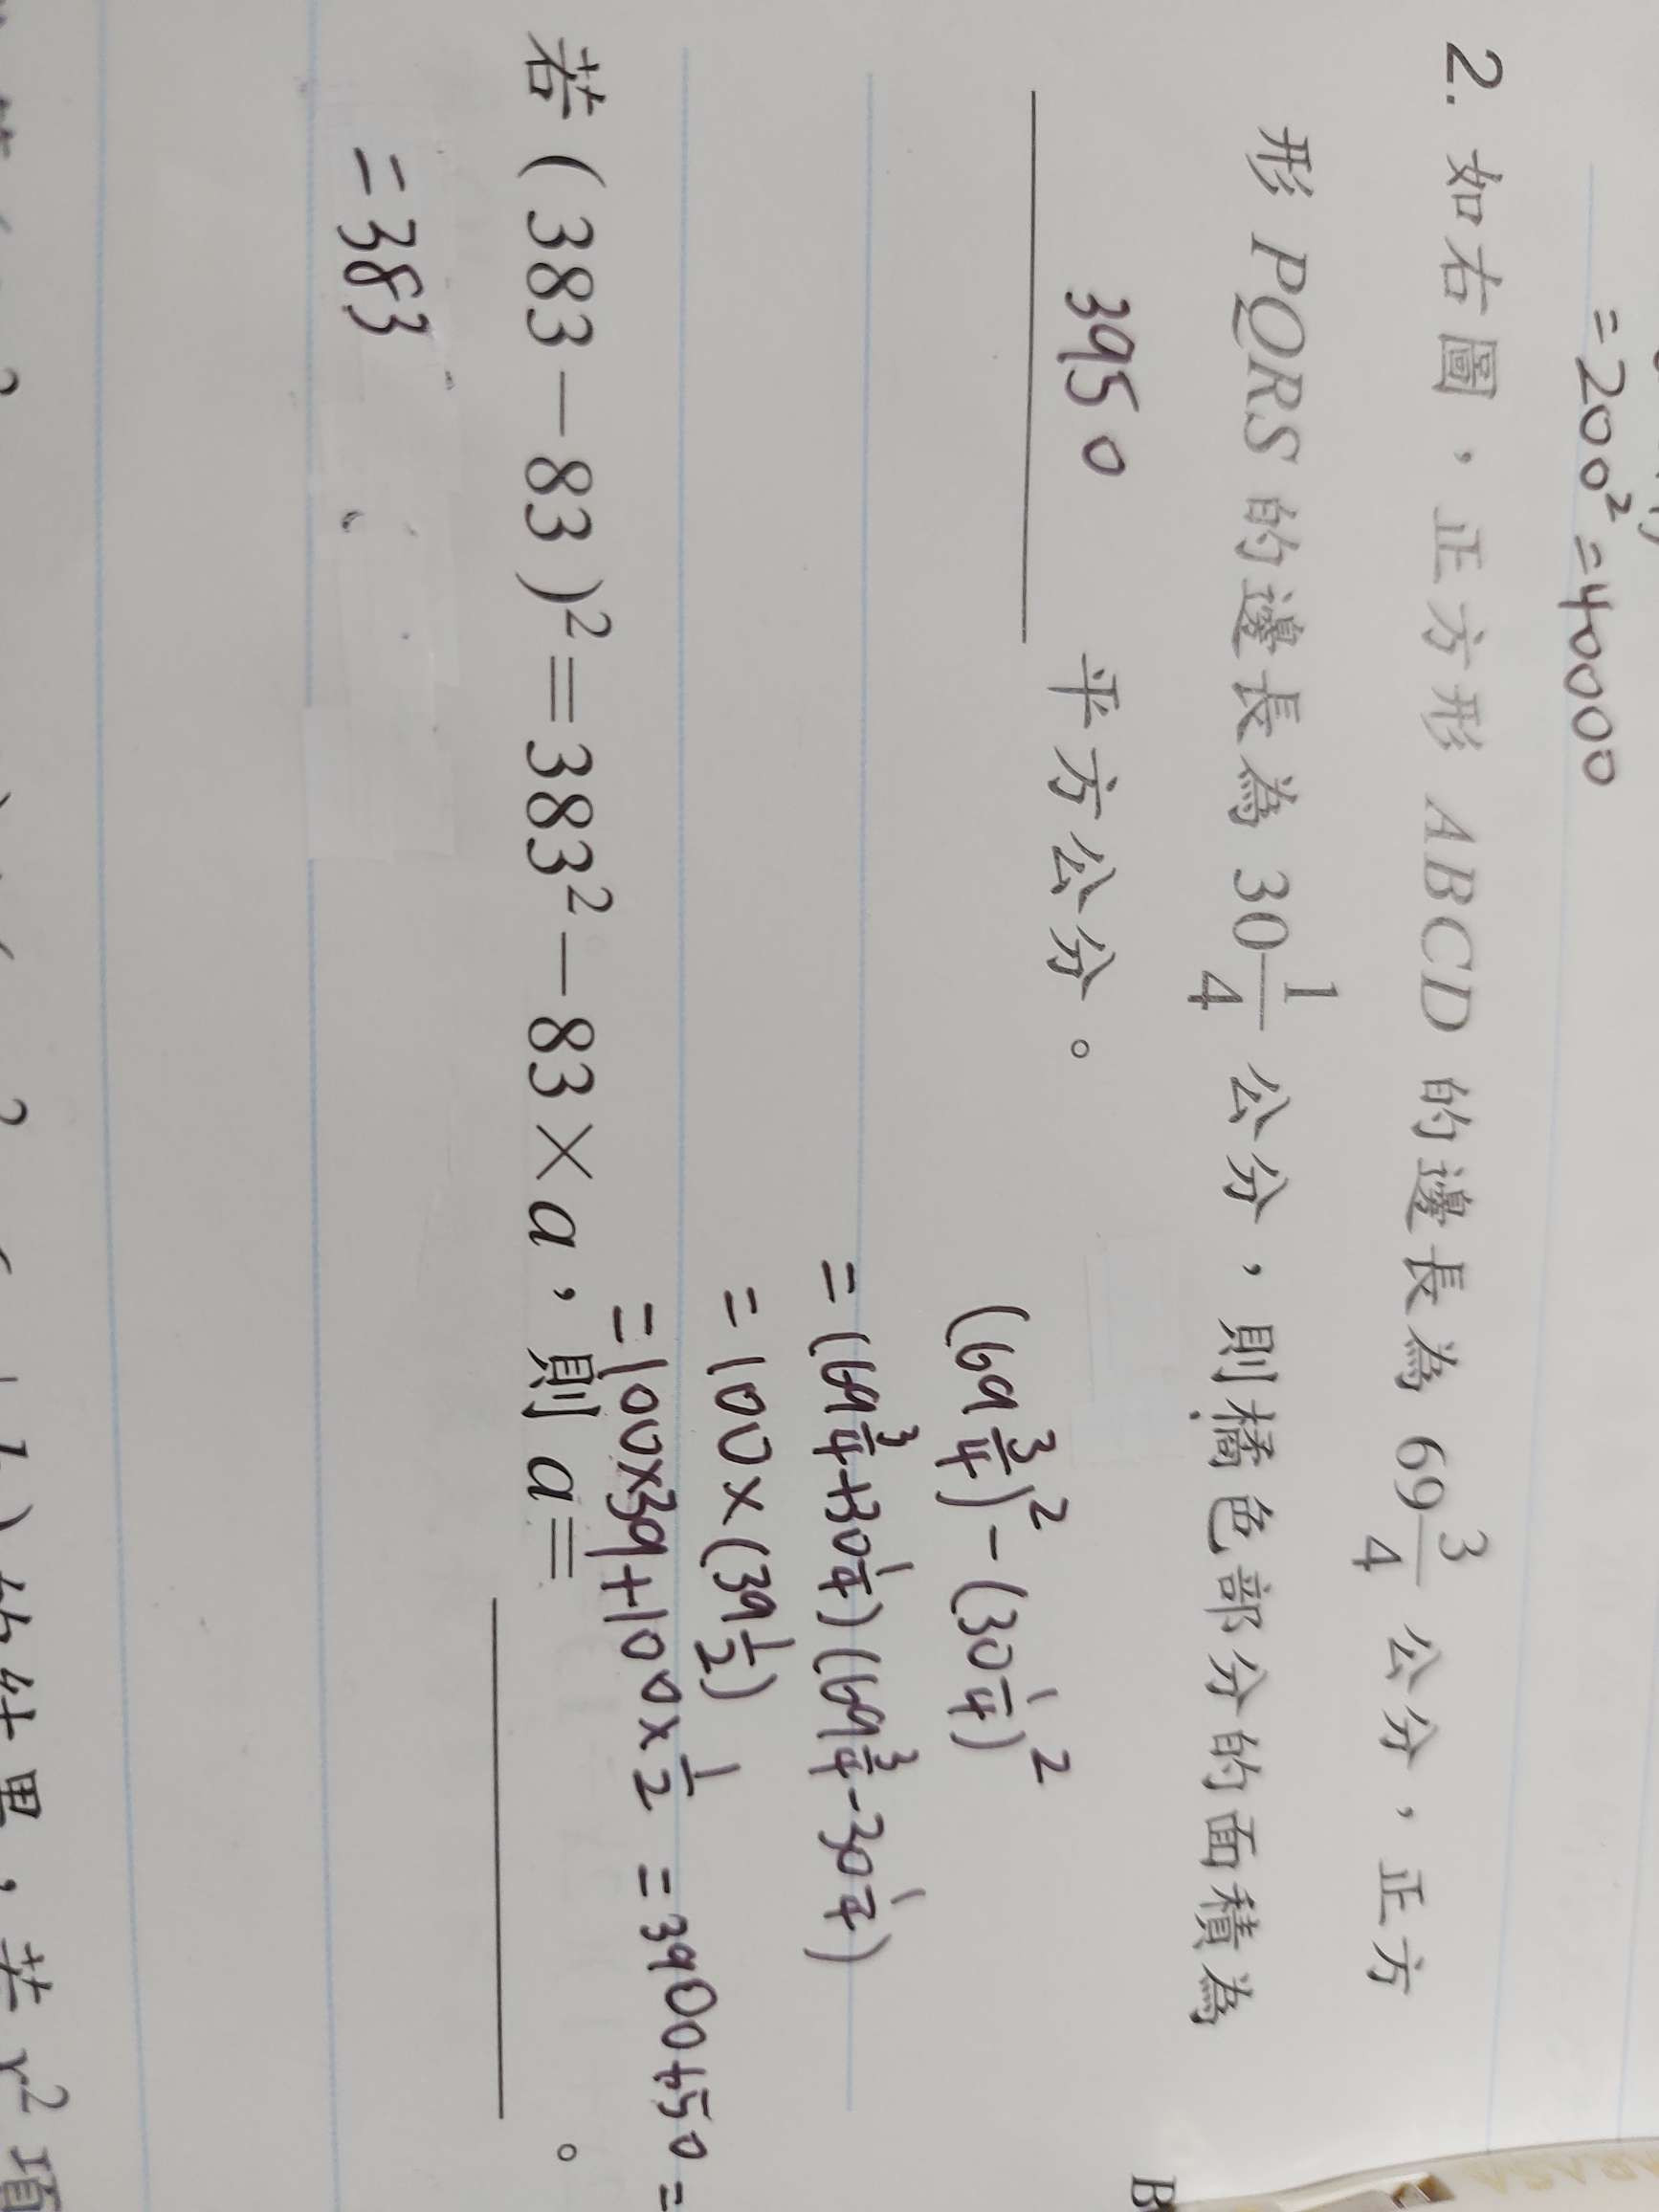 = 200² = 40000
2. 如右圖，正方形 ABCD 的邊長為 69 3/4 公分，正方
形 PQRS 的邊長為 30 1/4 公分，則橘色部分的面積為
3950 平方公分。
(69 3/4)² - (30 1/4)²
= (69 3/4 + 30 1/4) (69 3/4 - 30 1/4)
= 100 × (39 1/2)
= 100×39 + 100 × 1/2 = 3900+50 =
若 ( 383 － 83 )² = 383² － 83 × a，則 a = 。
= 383
的結果，若 x² 項
B